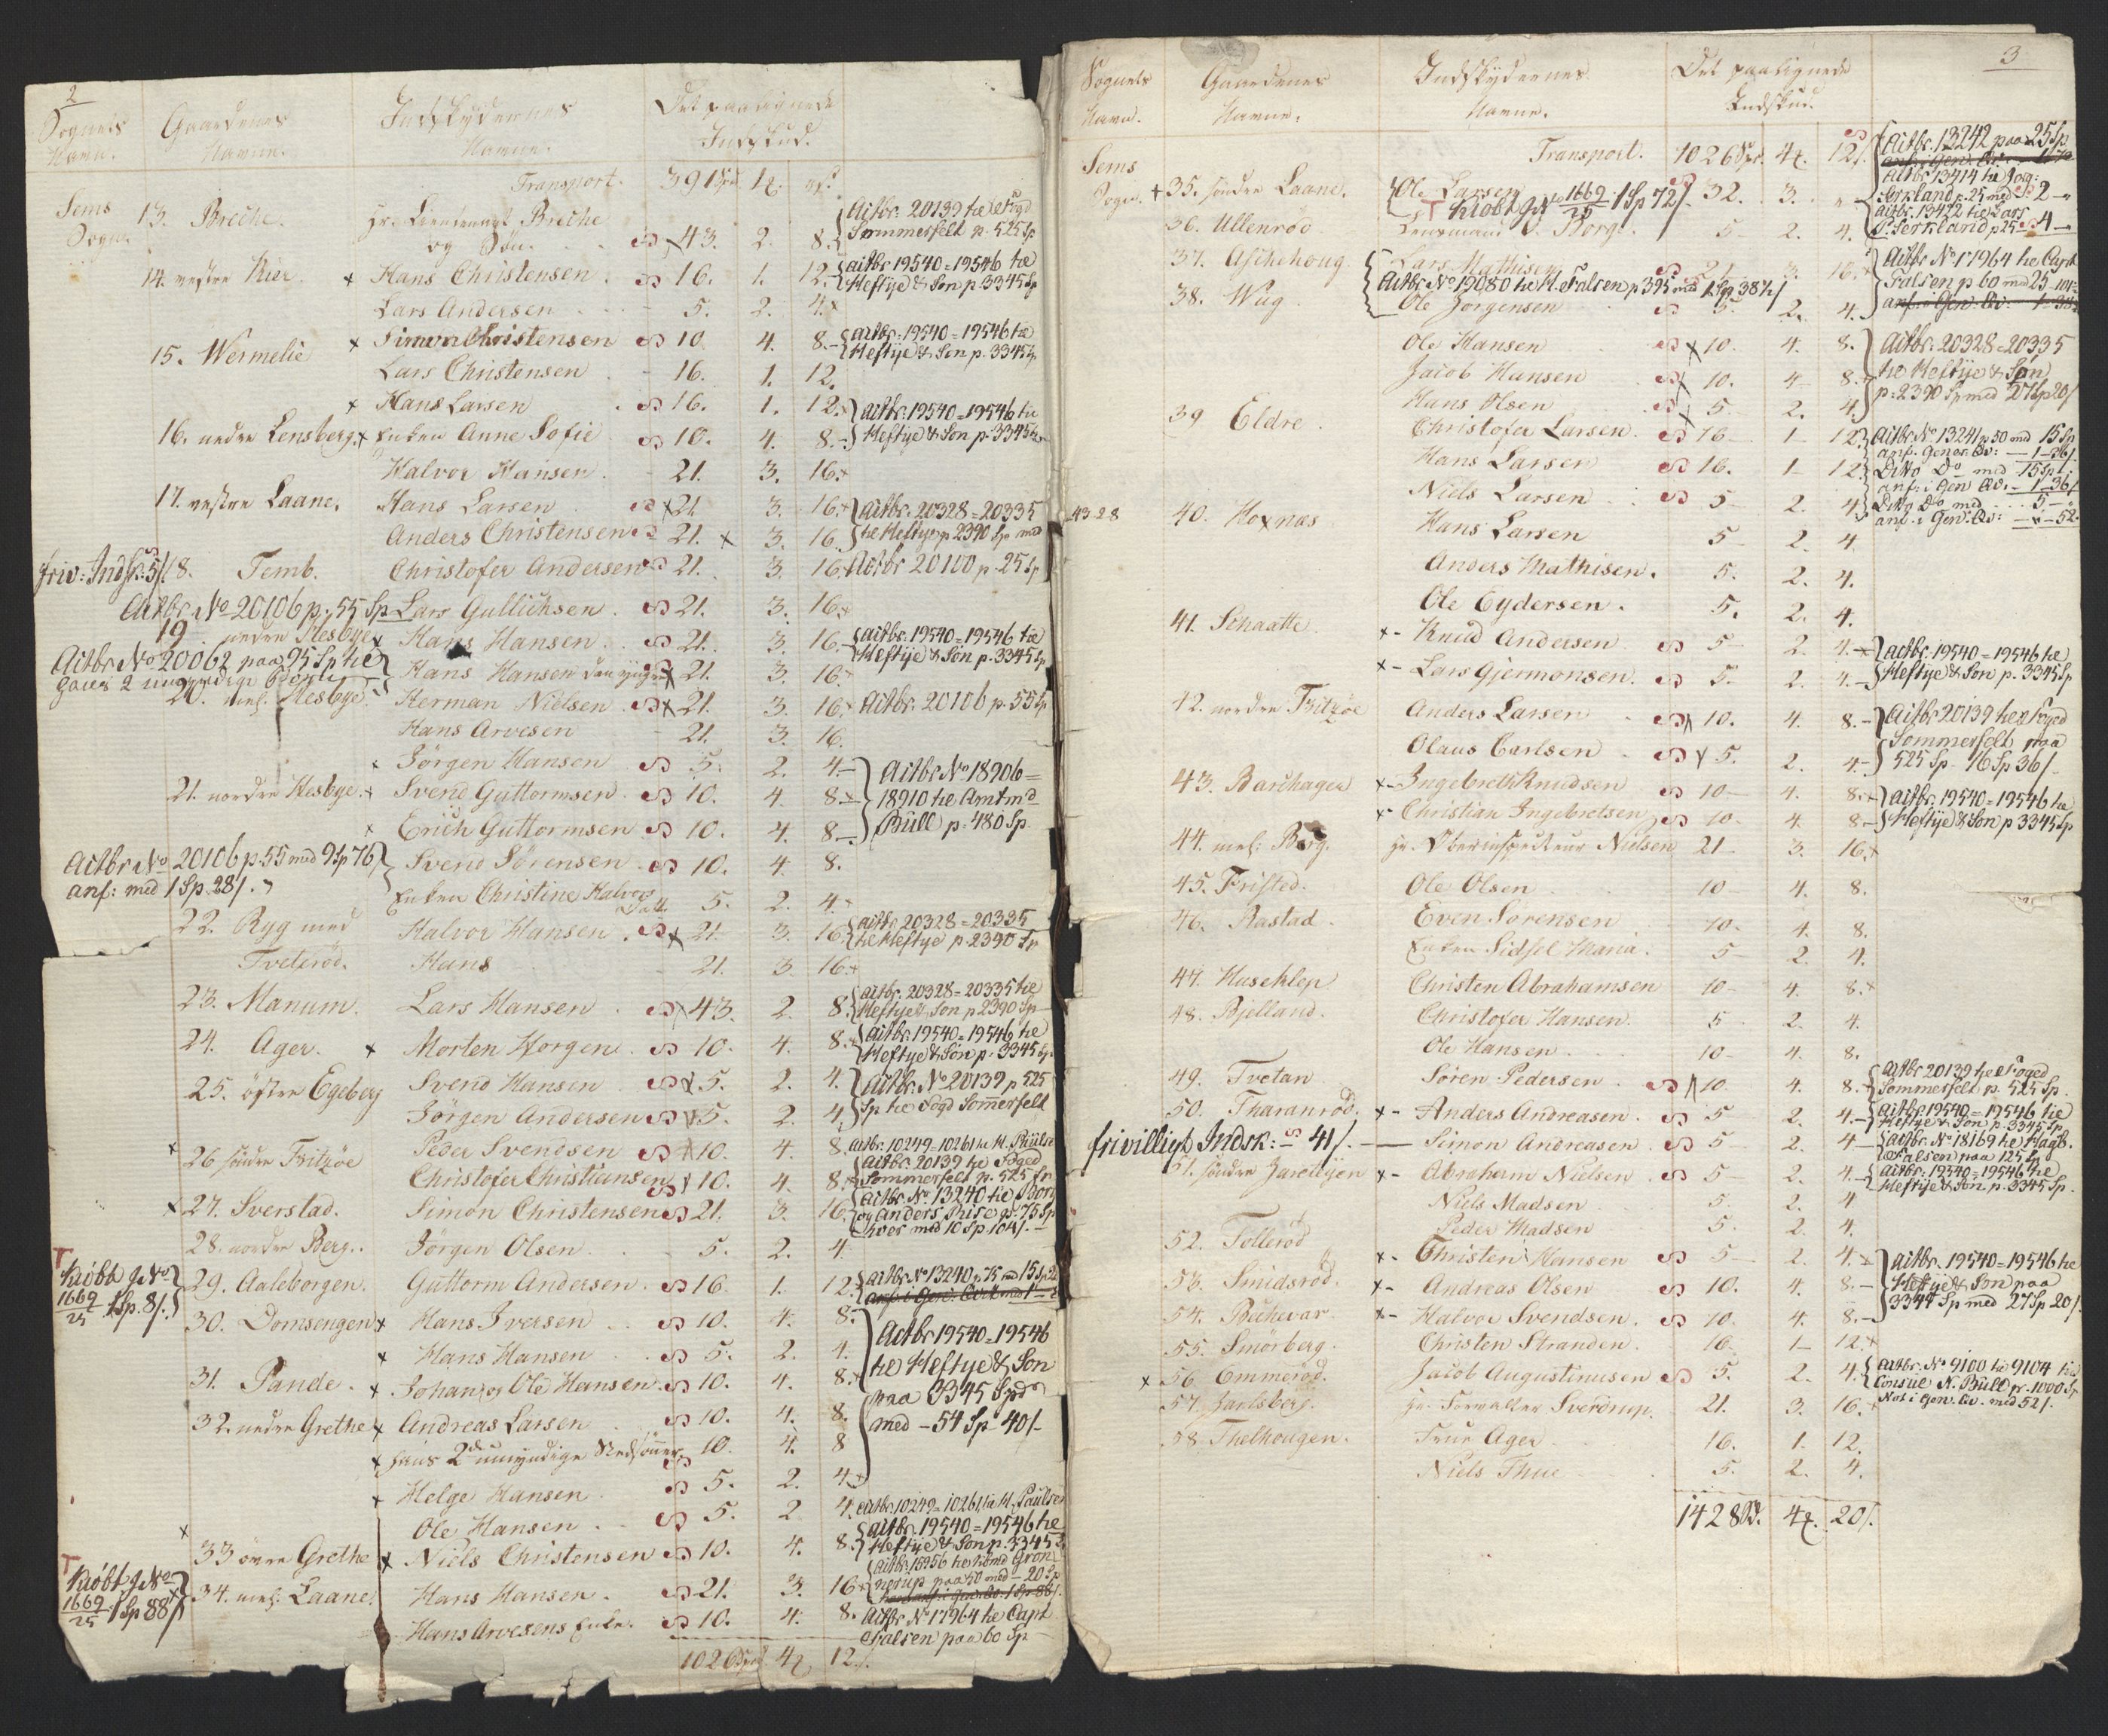 2
Sognets Navn. Gaardenes Navne. Indskydernes Navne. Det paalignede Indskud.
Transport. 391 Spd. 1 12
Sems Sogn. 13. Breche. Hr. Lieutenant Breche
og Søn. 43. 2. 8. {Actbr. 20139 til Fogd
Sommerfelt p. 525 Sp
14. vestre Kier. x Hans Christensen. 16. 1. 12. {Actbr 19540=19546 til
Heftye & Søn p. 3345 Sp
Lars Andersen 5. 2. 4.
15. Wermelie x Simon Christensen 10. 4. 8. {Actbr. 19540=19546 til
Heftye & Søn p. 3345 Sp
Lars Christensen 16. 1. 12.
x Hans Larsen 16. 1. 12. Actbr. 19540=19546 til
16. nedre Lensberg. x Enken Anne Sofie 10. 4. 8. Heftye & Søn p. 3345
Halvor Hansen. 21. 3. 16.
17. vestre Laane. Hans Larsen x 21 3. 16. Actbr. 20328=20335
Anders Christensen 21. x 3. 16. til Heftye p. 2390 Sp med
friv: Indsk: 5/ 18. Temb. Christofer Andersen 21. 3. 16. Actbr 20100 p. 25 Sp
Actbr No 20106 p. 55 Sp Lars Gullichsen. 21. 3. 16.
19. nedre Hesbye x Hans Hansen. 21. 3. 16. {Actbr. 19540=19546 til
Heftye & Søn p. 3345 Sp
Actbr No 20062 paa 95 Sp til Hans Hansen den yngre x 21. 3. 16.
20. mel. Hesbye. Herman Nielsen. x 21. 3. 16. Actbr. 20106 p. 55 Sp
Hans Arvesen 21. 3. 16.
x Jörgen Hansen 5. 2. 4. Actbr No 18906=
21. nordre Hesbye. x Svend Guttormsen. 10. 4. 8. 18910 til Amtmd
x Erich Guttormsen 10. 4. 8. Büll p. 480 Sp.
Actbr No 20106 p. 55 med 9 Sp 76/ Svend Sörensen 10. 4. 8.
anf: med 1 Sp. 28/. Enken Christine Halvors Datt. 5. 2. 4.
22. Ryg med Halvor Hansen. x 21. 3. 16. {Actbr 20328=20335
til Heftye p. 2390 Sp
Tveterød. Hans 21. 3. 16.
23. Manum. Lars Hansen. 43. 2. 8. {Actbr. 20328=20335 til
Heftye & Søn p 2390 Sp
24. Ager. x Morten Horgen. 10. 4. 8. {Actbr 19540=19546 til
Heftye & Søn p. 3345 Sp.
25. östre Egeberg Svend Hansen 5. 2. 4. Actbr. No 20139 p 525
Jörgen Andersen 5. 2. 4. Sp til Fogd Sommerfelt
x 26 söndre Fritzöe Peder Svendsen 10. 4. 8. Actbr. 10249=10261 til H. Paulsen
Christofer Christiansen 10. 4. 8. {Actbr. 20139 til Foged
Sommerfelt p. 525 Sp
x 27. Sverstad. Simon Christensen 21. 3. 16. {Actbr No 13240 til Borg
og Anders Riise p. 75 Sp
hver med 10 Sp 104/.
28. nordre Berg. Jörgen Olsen 5. 2. 4
Kiöbt q No 1669/25 1 Sp. 8/. 29. Aaleborgen. Guttorm Andersen. 16. 1. 12. {Actbr No 13240 p 75 med 15 Sp
30. Domsengen x Hans Iversen 10. 4. 8. Actbr 19540=19546
x Hans Hansen 5. 2. 4. til Heftye & Søn
31. Pande. x Johan og Ole Hansen. 10. 4. 8. paa 3345 Spd
32. nedre Grethe x Andreas Larsen 10. 4. 8. med - 54 Sp 40/-
x hans 2de umyndige Stedsönner 10. 4. 8
x Helge Hansen 5. 2. 4.
Ole Hansen. 5. 2 4. Actbr 10249=10261 til H. Paulsen
x 33 övre Grethe x Niels Christensen 10. 4. 8. {Actbr. 19540=19546 til
Heftye & Søn p. 3345
Kiöbt q No 1669/25 1 Sp 88/ 34. mel. Laane. Hans Hansen. 21. 3. 16
Hans Arvesens Enke. 10. 4. 8. Actbr No 17964 til Capt
Falsen paa 60 Sp
1026 Spd. 4 12/.
3
Sognets Navn. Gaardenes Navne. Indskydernes Navne. Det paalignede Indskud.
Transport. 1026 Spd. 4 12/. {Actbr. 13242 paa 25 Sp
Sems Sogn. + 35. söndre Laane. Ole Larsen 32. 3. {Actbr 13414 til Jörg:
Serkland p. 25 med 2
Kiöbt q No 1669/25 1 Sp 72/.
36. Ullenröd Lensmand Borge. 5 2. 4. Actbr. 13422 til Lars
Serkland p 25 4
37. Aschehoug Lars Mathisen 21. 3. 16. Actbr No 17964 til Capt
Actbr No 19080 til H. Falsen p 395 med 1 Sp 38½/ Falsen p 60 med 25
38. Wug Ole Jörgensen 5. 2. 4.
Ole Hansen x 10. 4. 8. Actbr. 20328=20335
Jacob Hansen 10. 4 8. til Heftye & Søn
Hans Olsen x 5 2. 4. p. 2390 Sp med 27 Sp 20/
39 Eldre. Christofer Larsen. 16 1 12. Actbr No 13241 p 50 med 15 Sp
anf. Gener. Qv: 1-36/
Hans Larsen 16. 1 12. Ditto Do med 15 Sp
anf. i Gen Qv. 1-36/
Niels Larsen 5 2. 4. Ditto Do med 5
anf. i Gen. Qv: 52.
4328 40. Hoxnæs Hans Larsen 5 2. 4.
Anders Mathisen. 5. 2. 4.
Ole Eydersen. 5. 2 4.
41. Schaatte. x- Knud Andersen 5 2. 4. Actbr. 19540=19546 til
x- Lars Gjermonsen. 5. 2. 4. Heftye & Søn p. 3345 Sp
42. nordre Fritzöe Anders Larsen 10. 4. 8. Actbr 20139 til Foged
Sommerfelt paa
Olaus Carlsen 5. 2. 4. 525 Sp. 16 Sp 36/-
43. Barchager x- Ingebreth Knudsen 10 4. 8. Actbr. 19540=19546 til
x- Christian Ingebretsen 10. 4. 8 Heftye & Søn p 3345 Sp
44. mel: Berg. Hr. Oberinspecteur Nielsen 21 3. 16.
45. Fristed. Ole Olsen 10 4. 8.
46. Rastad. Even Sörensen 10. 4. 8.
Enken Sidsel Maria. 5 2 4.
47. Huseklep Christen Abrahamsen 10 4. 8.
48. Bjelland. Christofer Hansen. 5 2. 4.
Ole Hansen 10 4. 8.
49. Tvetan Sören Pedersen 10. 4. 8. {Actbr 20139 til Foged
Sommerfelt p. 525 Sp.
50. Tharanröd. x- Anders Andreasen. 5 2. 4. {Actbr. 19540=19546 til
Heftye & Søn p. 3345 Sp
frivilligt Indsk: 41/. Simon Andreasen 5 2. 4 {Actbr. No 18169 til
Falsen paa 125 Sp
51. söndre Jareteyen x- Abraham Nielsen 5 2. 4. {Actbr. 19540=19546 til
Heftye & Søn p. 3345 Sp.
Niels Madsen 5. 2. 4
Peder Madsen 5. 2 4.
52. Tolleröd x- Christen Hansen 5 2. 4. Actbr. 19540=19546 til
53. Smidsröd. x- Andreas Olsen 10. 4. 8. Heftye & Søn paa
54. Buhevar x- Halvor Svendsen. 10. 4. 8. 3344 Sp med 27 Sp 20/.
55. Smörberg. Christen Stranden. 16. 1 12.
x 56 Ommeröd. Jacob Augustinusen 5. 2. 4. {Actbr. No 9100 til 9104 til
Consul N. Büll p. 1000 Sp
57. Jarlsberg. Hr. Forvalter Sverdrup. 21. 3. 16. Not i Gen. Qv. med 52/.
58 Thelhougen. Frue Ager 16. 1. 12.
Niels Thue 5. 2. 4.
1428 Sp. 4 20/.